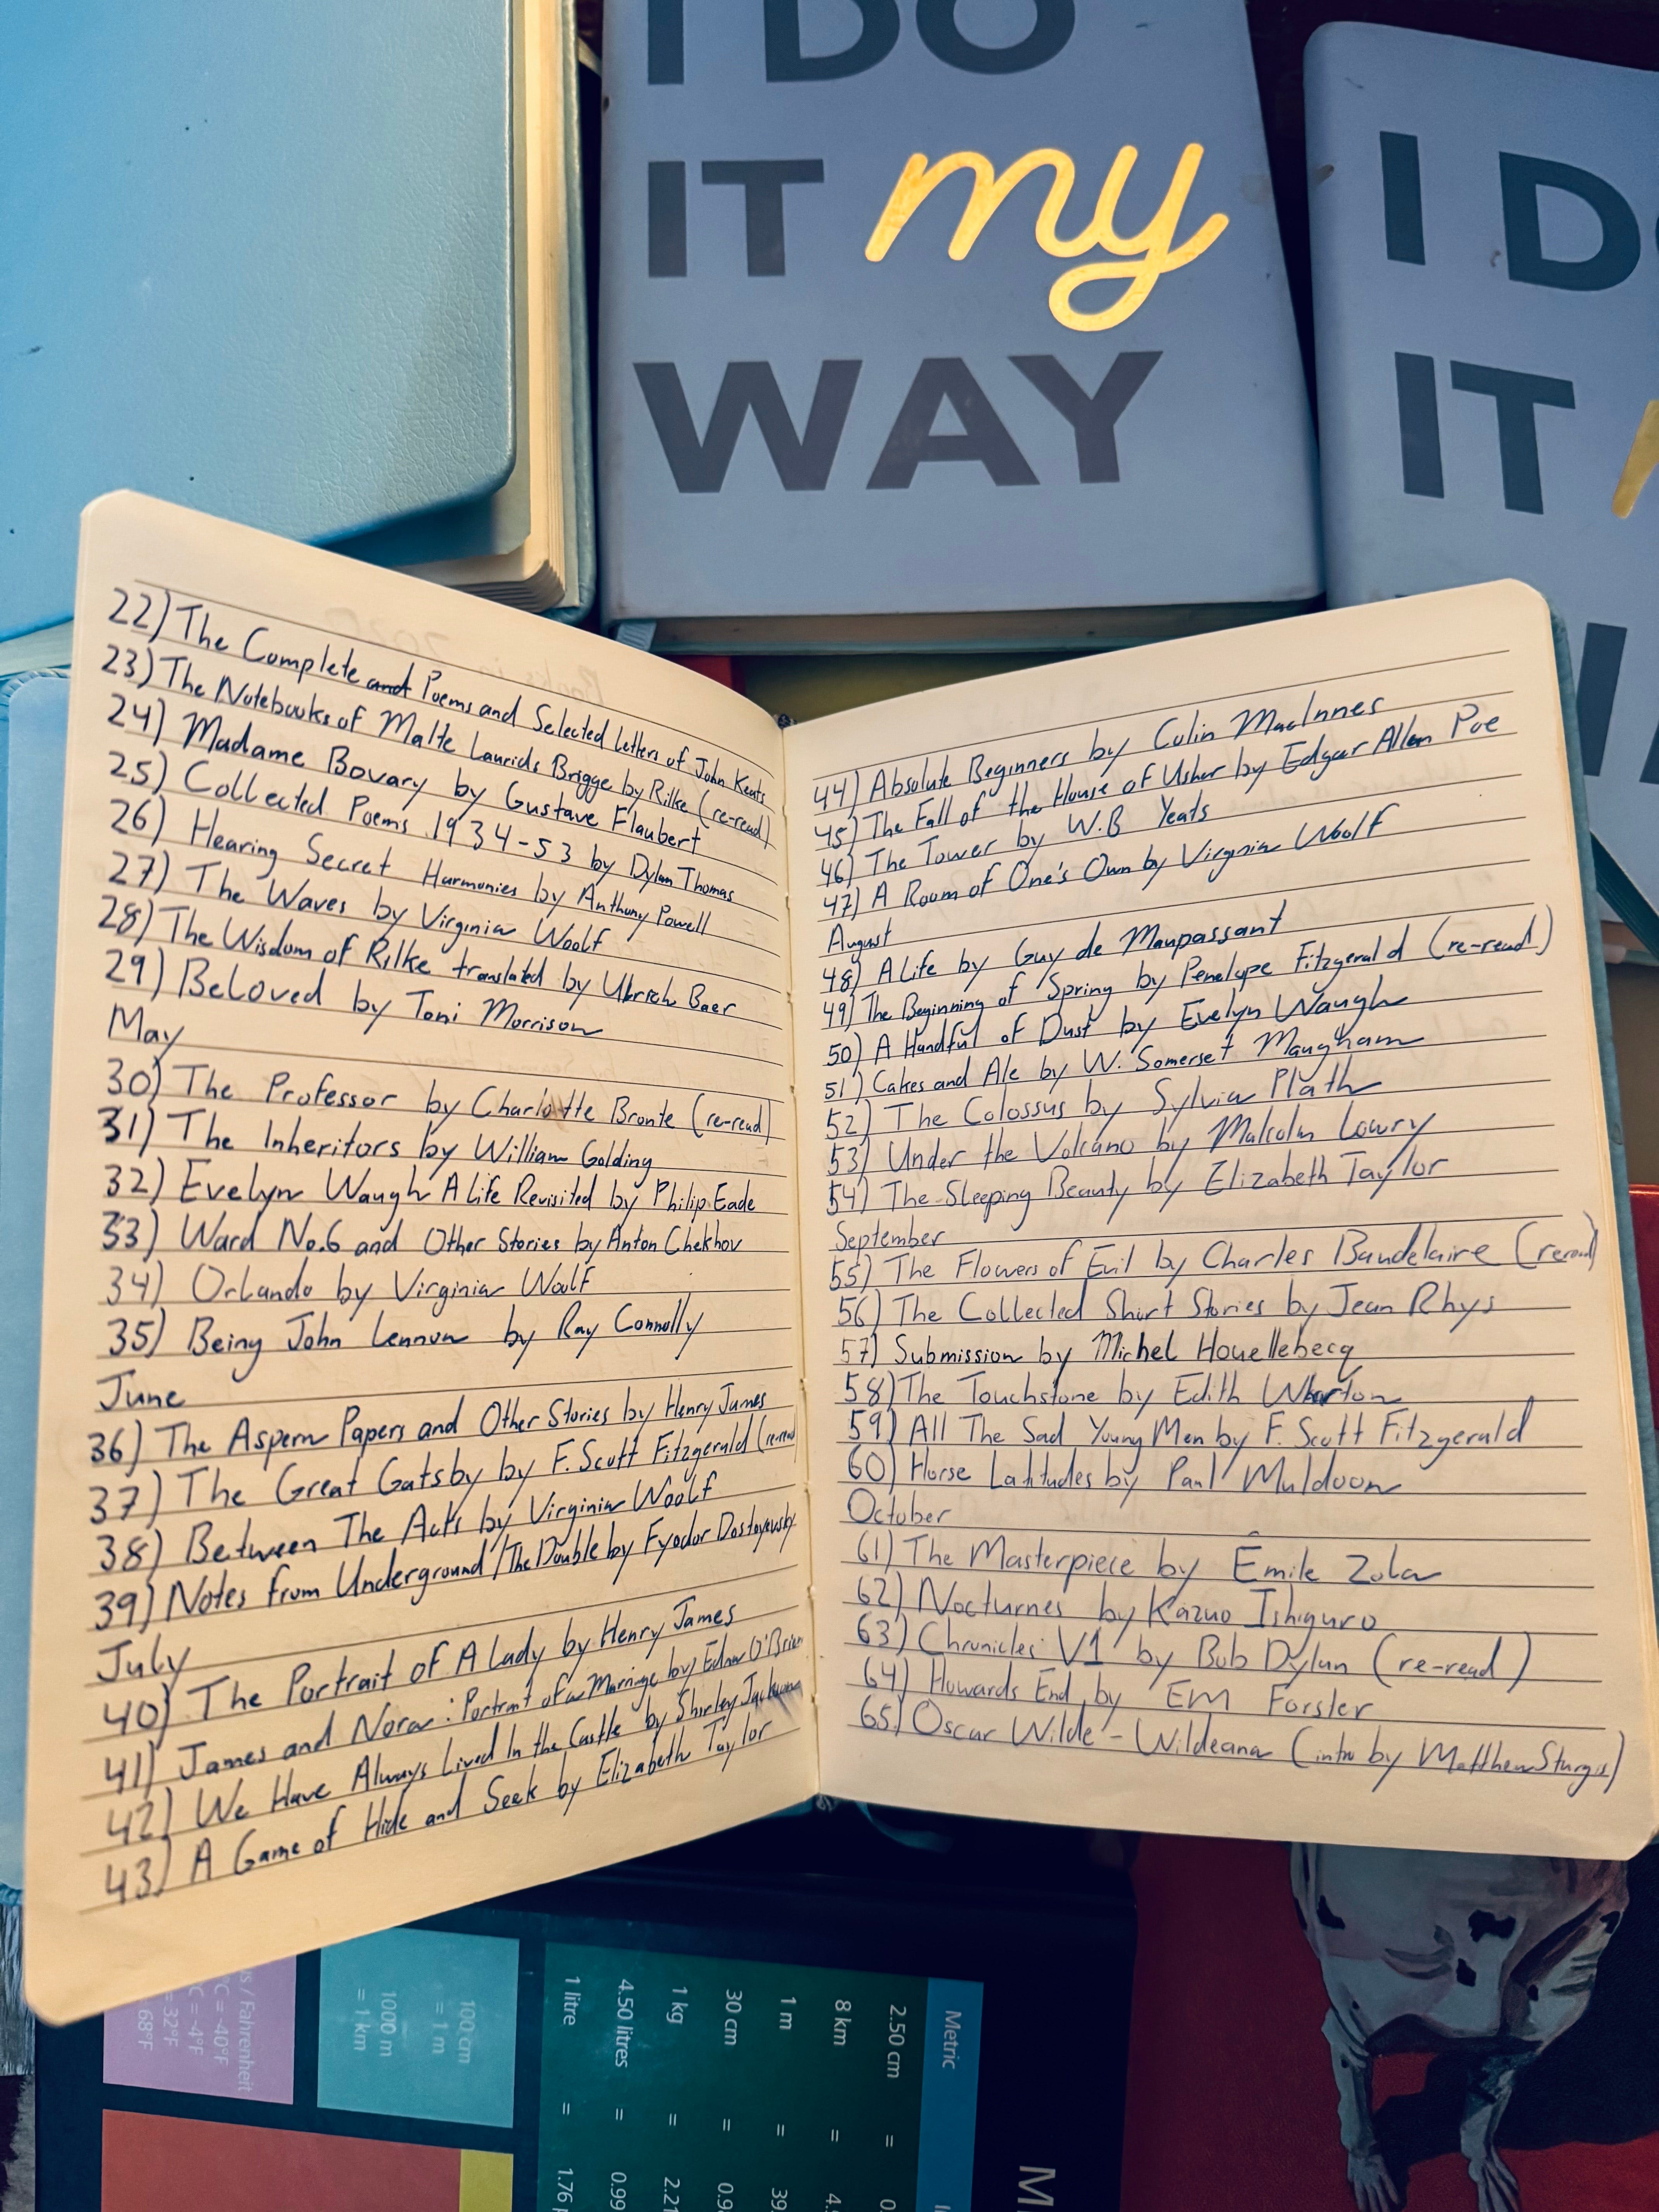 I DO
IT my
WAY
I DO
IT
22) The Complete and Poems and Selected Letters of John Keats
23) The Notebooks of Malte Laurids Brigge by Rilke (re-read)
24) Madame Bovary by Gustave Flaubert
25) Collected Poems 1934-53 by Dylan Thomas
26) Hearing Secret Harmonies by Anthony Powell
27) The Waves by Virginia Woolf
28) The Wisdom of Rilke translated by Ulrich Baer
29) Beloved by Toni Morrison
May
30) The Professor by Charlotte Bronte (re-read)
31) The Inheritors by William Golding
32) Evelyn Waugh A Life Revisited by Philip Eade
33) Ward No.6 and Other Stories by Anton Chekhov
34) Orlando by Virginia Woolf
35) Being John Lennon by Ray Connolly
June
36) The Aspern Papers and Other Stories by Henry James
37) The Great Gatsby by F. Scott Fitzgerald (re-read
38) Between The Acts by Virginia Woolf
39) Notes from Underground / The Double by Fyodor Dostoyevsky
July
40) The Portrait of A Lady by Henry James
41) James and Nora: Portrait of a Marriage by Edna O'Brien
42) We Have Always Lived In the Castle by Shirley Jackson
43) A Game of Hide and Seek by Elizabeth Taylor
44) Absolute Beginners by Colin MacInnes
45) The Fall of the House of Usher by Edgar Allan Poe
46) The Tower by W.B Yeats
47) A Room of One's Own by Virginia Woolf
August
48) A Life by Guy de Maupassant
49) The Beginning of Spring by Penelope Fitzgerald (re-read)
50) A Handful of Dust by Evelyn Waugh
51) Cakes and Ale by W. Somerset Maugham
52) The Colossus by Sylvia Plath
53) Under the Volcano by Malcolm Lowry
54) The Sleeping Beauty by Elizabeth Taylor
September
55) The Flowers of Evil by Charles Baudelaire (reread)
56) The Collected Short Stories by Jean Rhys
57) Submission by Michel Houellebecq
58) The Touchstone by Edith Wharton
59) All The Sad Young Men by F. Scott Fitzgerald
60) Horse Latitudes by Paul Muldoon
October
61) The Masterpiece by Êmile Zola
62) Nocturnes by Kazuo Ishiguro
63) Chronicles V1 by Bob Dylan (re-read)
64) Howards End by EM Forster
65) Oscar Wilde - Wildeana (intro by Matthew Sturgis)
Metric
2.50 cm =
8 km =
1 m =
30 cm =
1 kg = 2.21
4.50 litres = 0.99
1 litre = 1.76
100 cm
= 1 m
1000 m
= 1 km
/ Fahrenheit
°C = -40°F
C = -4°F
= 32°F
68°F